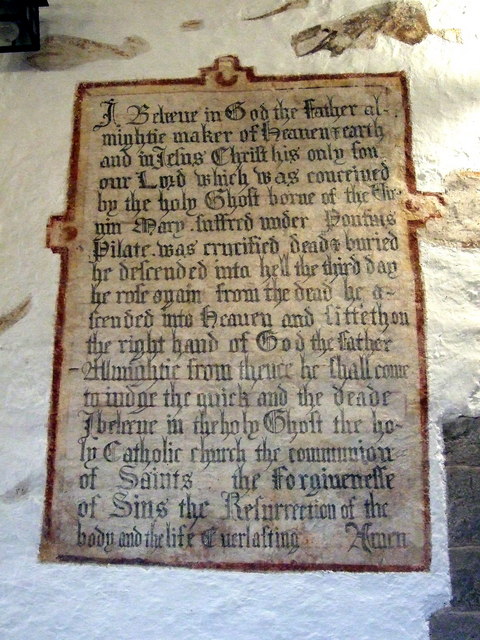 I Beleeue in God the Father al-
mightie maker of Heauen & earth
and in Jesus Christ his only son
our Lord which was conceiued
by the holy Ghost borne of the Vir-
nin Mary. suffred under Pontius
Pilate. was crucified dead & buried
he descended into hell the third day
he rose again from the dead he a-
scended into Heauen and sitteth on
the right hand of God the Father
Almightie from thence he shall come
to iudge the quick and the deade
I beleeue in the holy Ghost the ho-
ly Catholic church the communion
of Saints the Forgiuenesse
of Sins the Resurrection of the
body and the life Euerlasting Amen